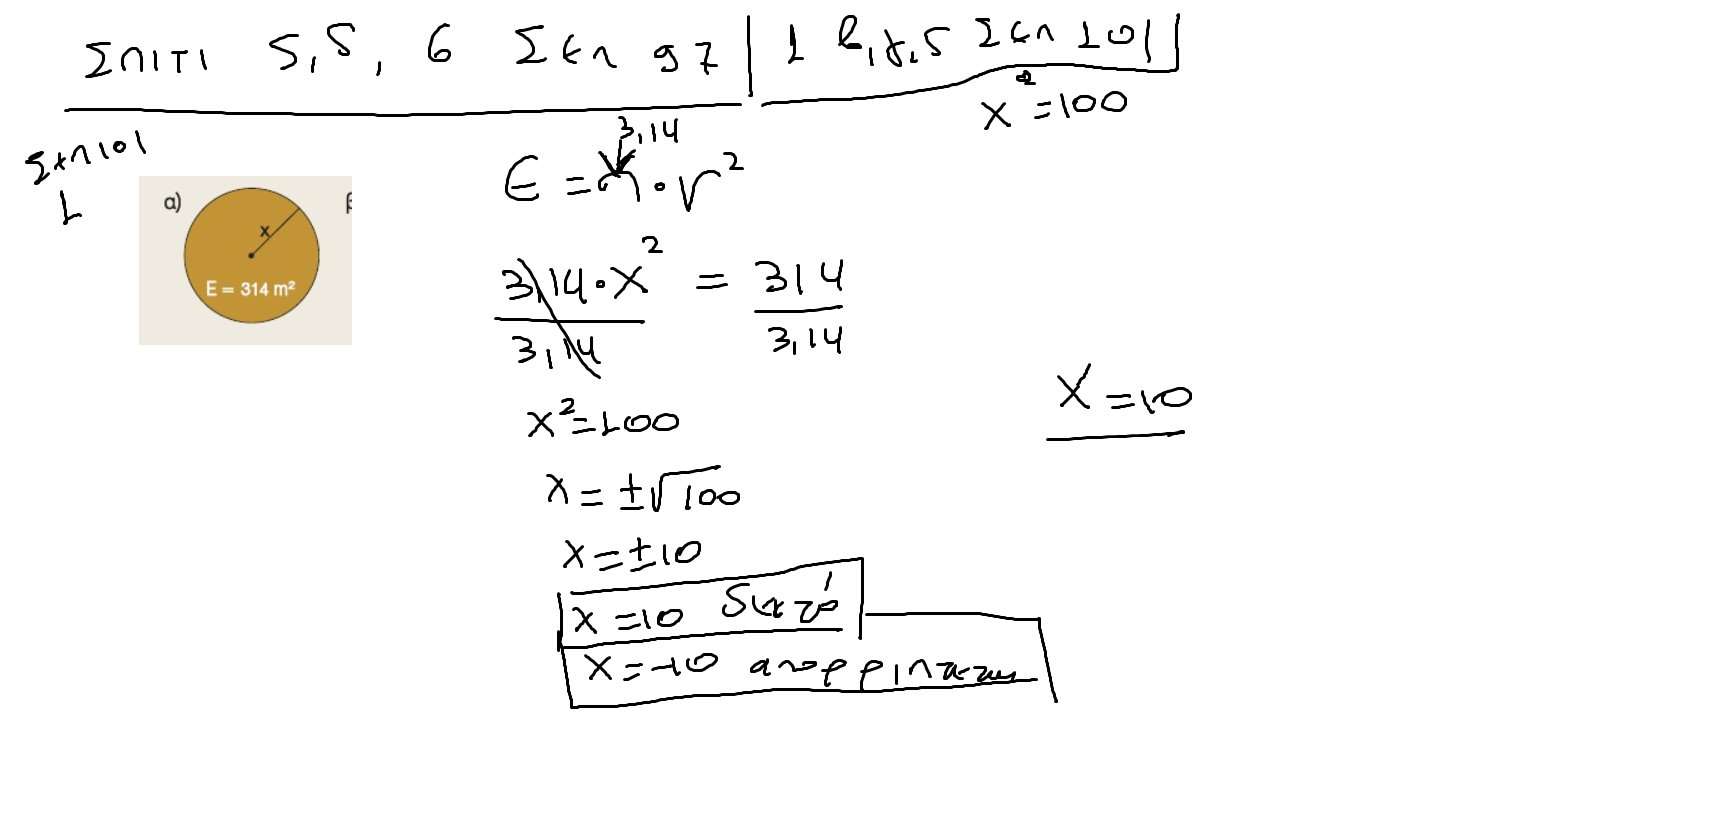 ΣΠΙΤΙ 5, δ, 6 Σελ 97 | 1 β, γ, δ Σελ 101
x²=100
Σελ 101
1
α)
x
E = 314 m²
3,14
E = π·r²
3,14·x² = 314
3,14 3,14
x²=100
x = ±√100
x=±10
x=10 δεκτό
x=-10 απορρίπτεται
x=10